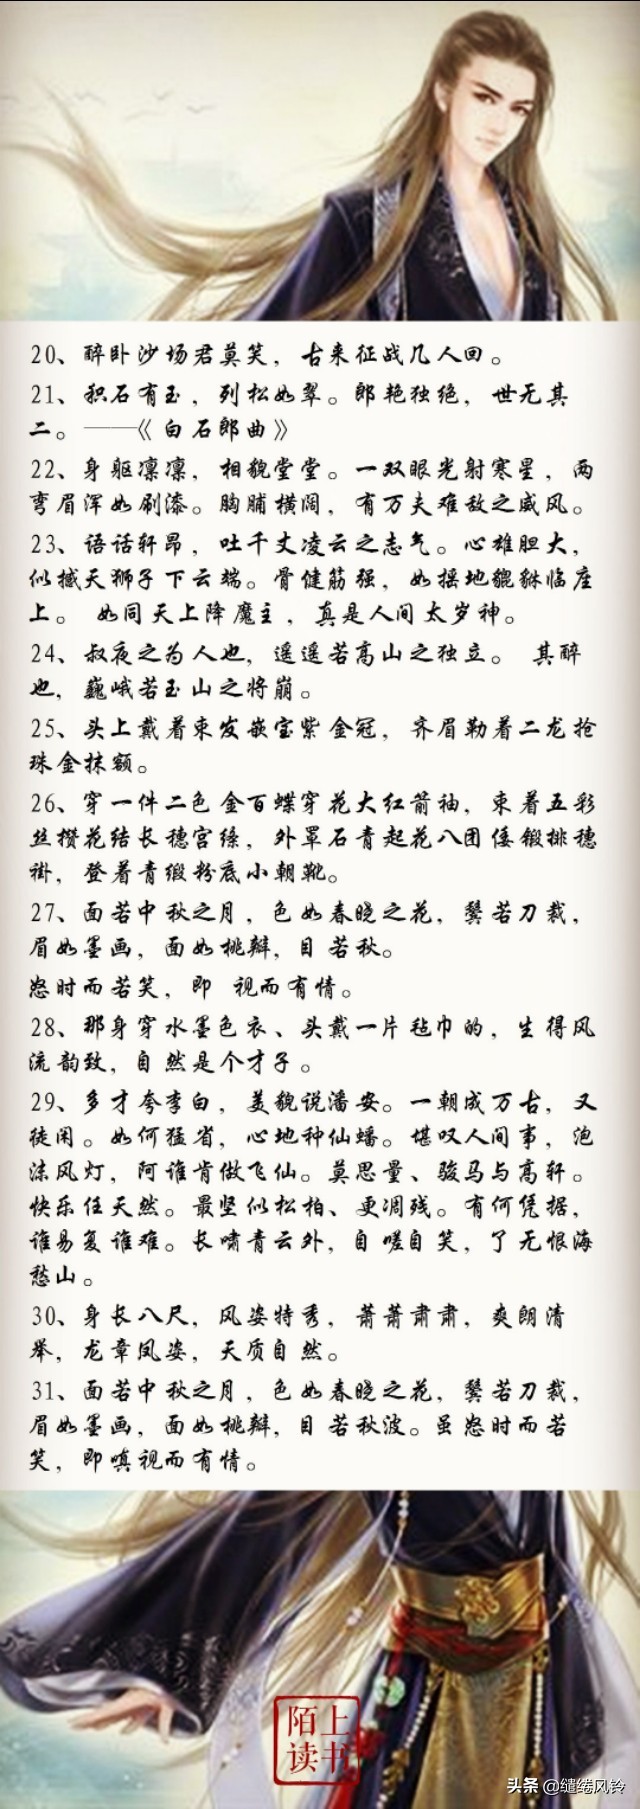 20、醉卧沙场君莫笑，古来征战几人回。
21、积石有玉，列松如翠。郎艳独绝，世无其
二。——《白石郎曲》
22、身躯凛凛，相貌堂堂。一双眼光射寒星，两
弯眉浑如刷漆。胸脯横阔，有万夫难敌之威风。
23、语话轩昂，吐千丈凌云之志气。心雄胆大，
似撼天狮子下云端。骨健筋强，如摇地貔貅临座
上。 如同天上降魔主，真是人间太岁神。
24、叔夜之为人也，遥遥若高山之独立。 其醉
也，巍峨若玉山之将崩。
25、头上戴着束发嵌宝紫金冠，齐眉勒着二龙抢
珠金抹额。
26、穿一件二色金百蝶穿花大红箭袖，束着五彩
丝攒花结长穗宫绦，外罩石青起花八团倭锻排穗
褂，登着青缎粉底小朝靴。
27、面若中秋之月，色如春晓之花，鬓若刀裁，
眉如墨画，面如桃瓣，目若秋。
怒时而若笑，即 视而有情。
28、那身穿水墨色衣、头戴一片毡巾的，生得风
流韵致，自然是个才子。
29、多才夸李白，美貌说潘安。一朝成万古，又
徒闲。如何猛省，心地种仙蟠。堪叹人间事，泡
沫风灯，阿谁肯做飞仙。莫思量、骏马与高轩。
快乐任天然。最坚似松柏、更凋残。有何凭据，
谁易复谁难。长啸青云外，自嗟自笑，了无恨海
愁山。
30、身长八尺，风姿特秀，萧萧肃肃，爽朗清
举，龙章凤姿，天质自然。
31、面若中秋之月，色如春晓之花，鬓若刀裁，
眉如墨画，面如桃瓣，目若秋波。虽怒时而若
笑，即嗔视而有情。
陌上
读书
头条 @缱绻风铃